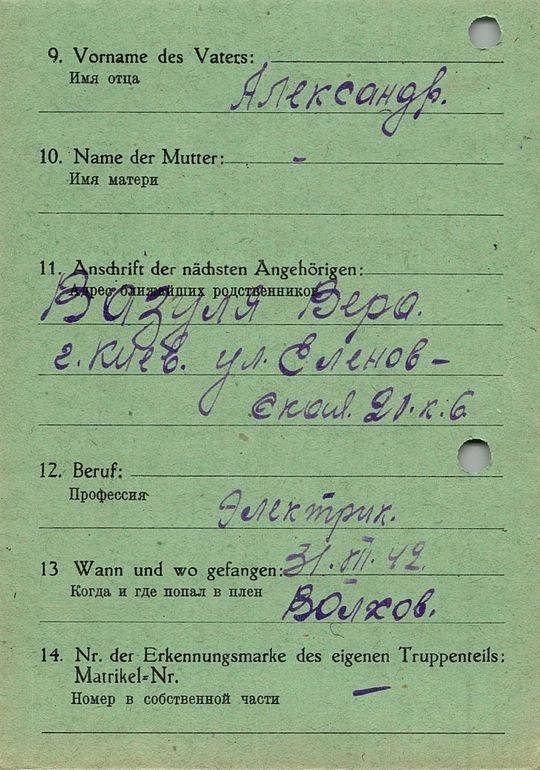 9. Vorname des Vaters:
Имя отца
Александр.
10. Name der Mutter: -
Имя матери
11. Anschrift der nächsten Angehörigen:
Адрес ближайших родственников
Вазуля Вера.
г. Киев. ул. Еленов-
ская. 21. к. 6
12. Beruf:
Профессия
Электрик.
13 Wann und wo gefangen: 31. VII. 42.
Когда и где попал в плен
Волхов.
14. Nr. der Erkennungsmarke des eigenen Truppenteils:
Matrikel=Nr. —
Номер в собственной части